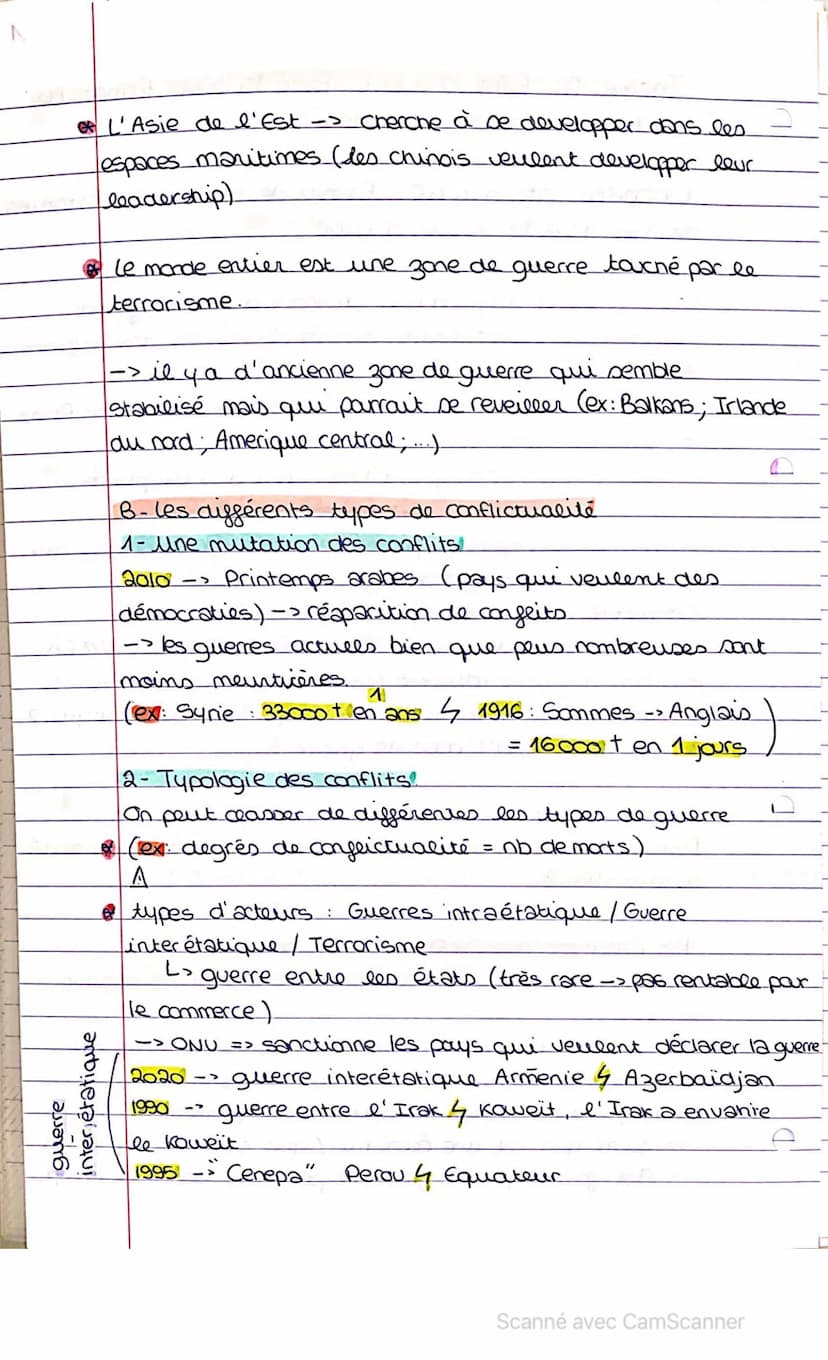 L'Asie de l'Est -> cherche à se developper dans les
espaces maritimes (les chinois veulent developper leur
leadership)
Le monde entier est une zone de guerre taxné par le
terrorisme.
-> il y a d'ancienne zone de guerre qui semble
stabilisé mais qui parrait se reveiller (ex: Balkans ; Irlande
du nord ; Amerique central ; ...)
B- Les différents types de conflictualité
1- Une mutation des conflits
2010 -> Printemps arabes (pays qui veulent des
démocraties) -> réaparition de conflits
-> les guerres actuelles bien que plus nombreuses sont
moins meurtrières.
(ex: Syrie : 33000 † en 1 ans ↯ 1916 : Sommes -> Anglais
= 16000 † en 1 jours)
2- Typologie des conflits
On peut classer de différentes les types de guerre
(ex: degrés de conflictualité = nb de morts)
types d'acteurs : Guerres intraétatique / Guerre
interétatique / Terrorisme
↳ guerre entre les états (très rare -> pas rentable par
le commerce)
-> ONU => sanctionne les pays qui veulent déclarer la guerre
guerre interétatique
2020 -> guerre interétatique Armēnie ↯ Azerbaïdjan
1990 -> guerre entre l'Irak ↯ Koweït, l'Irak a envahie
le Koweït
1995 -> "Cenepa" Perou ↯ Equateur
Scanné avec CamScanner